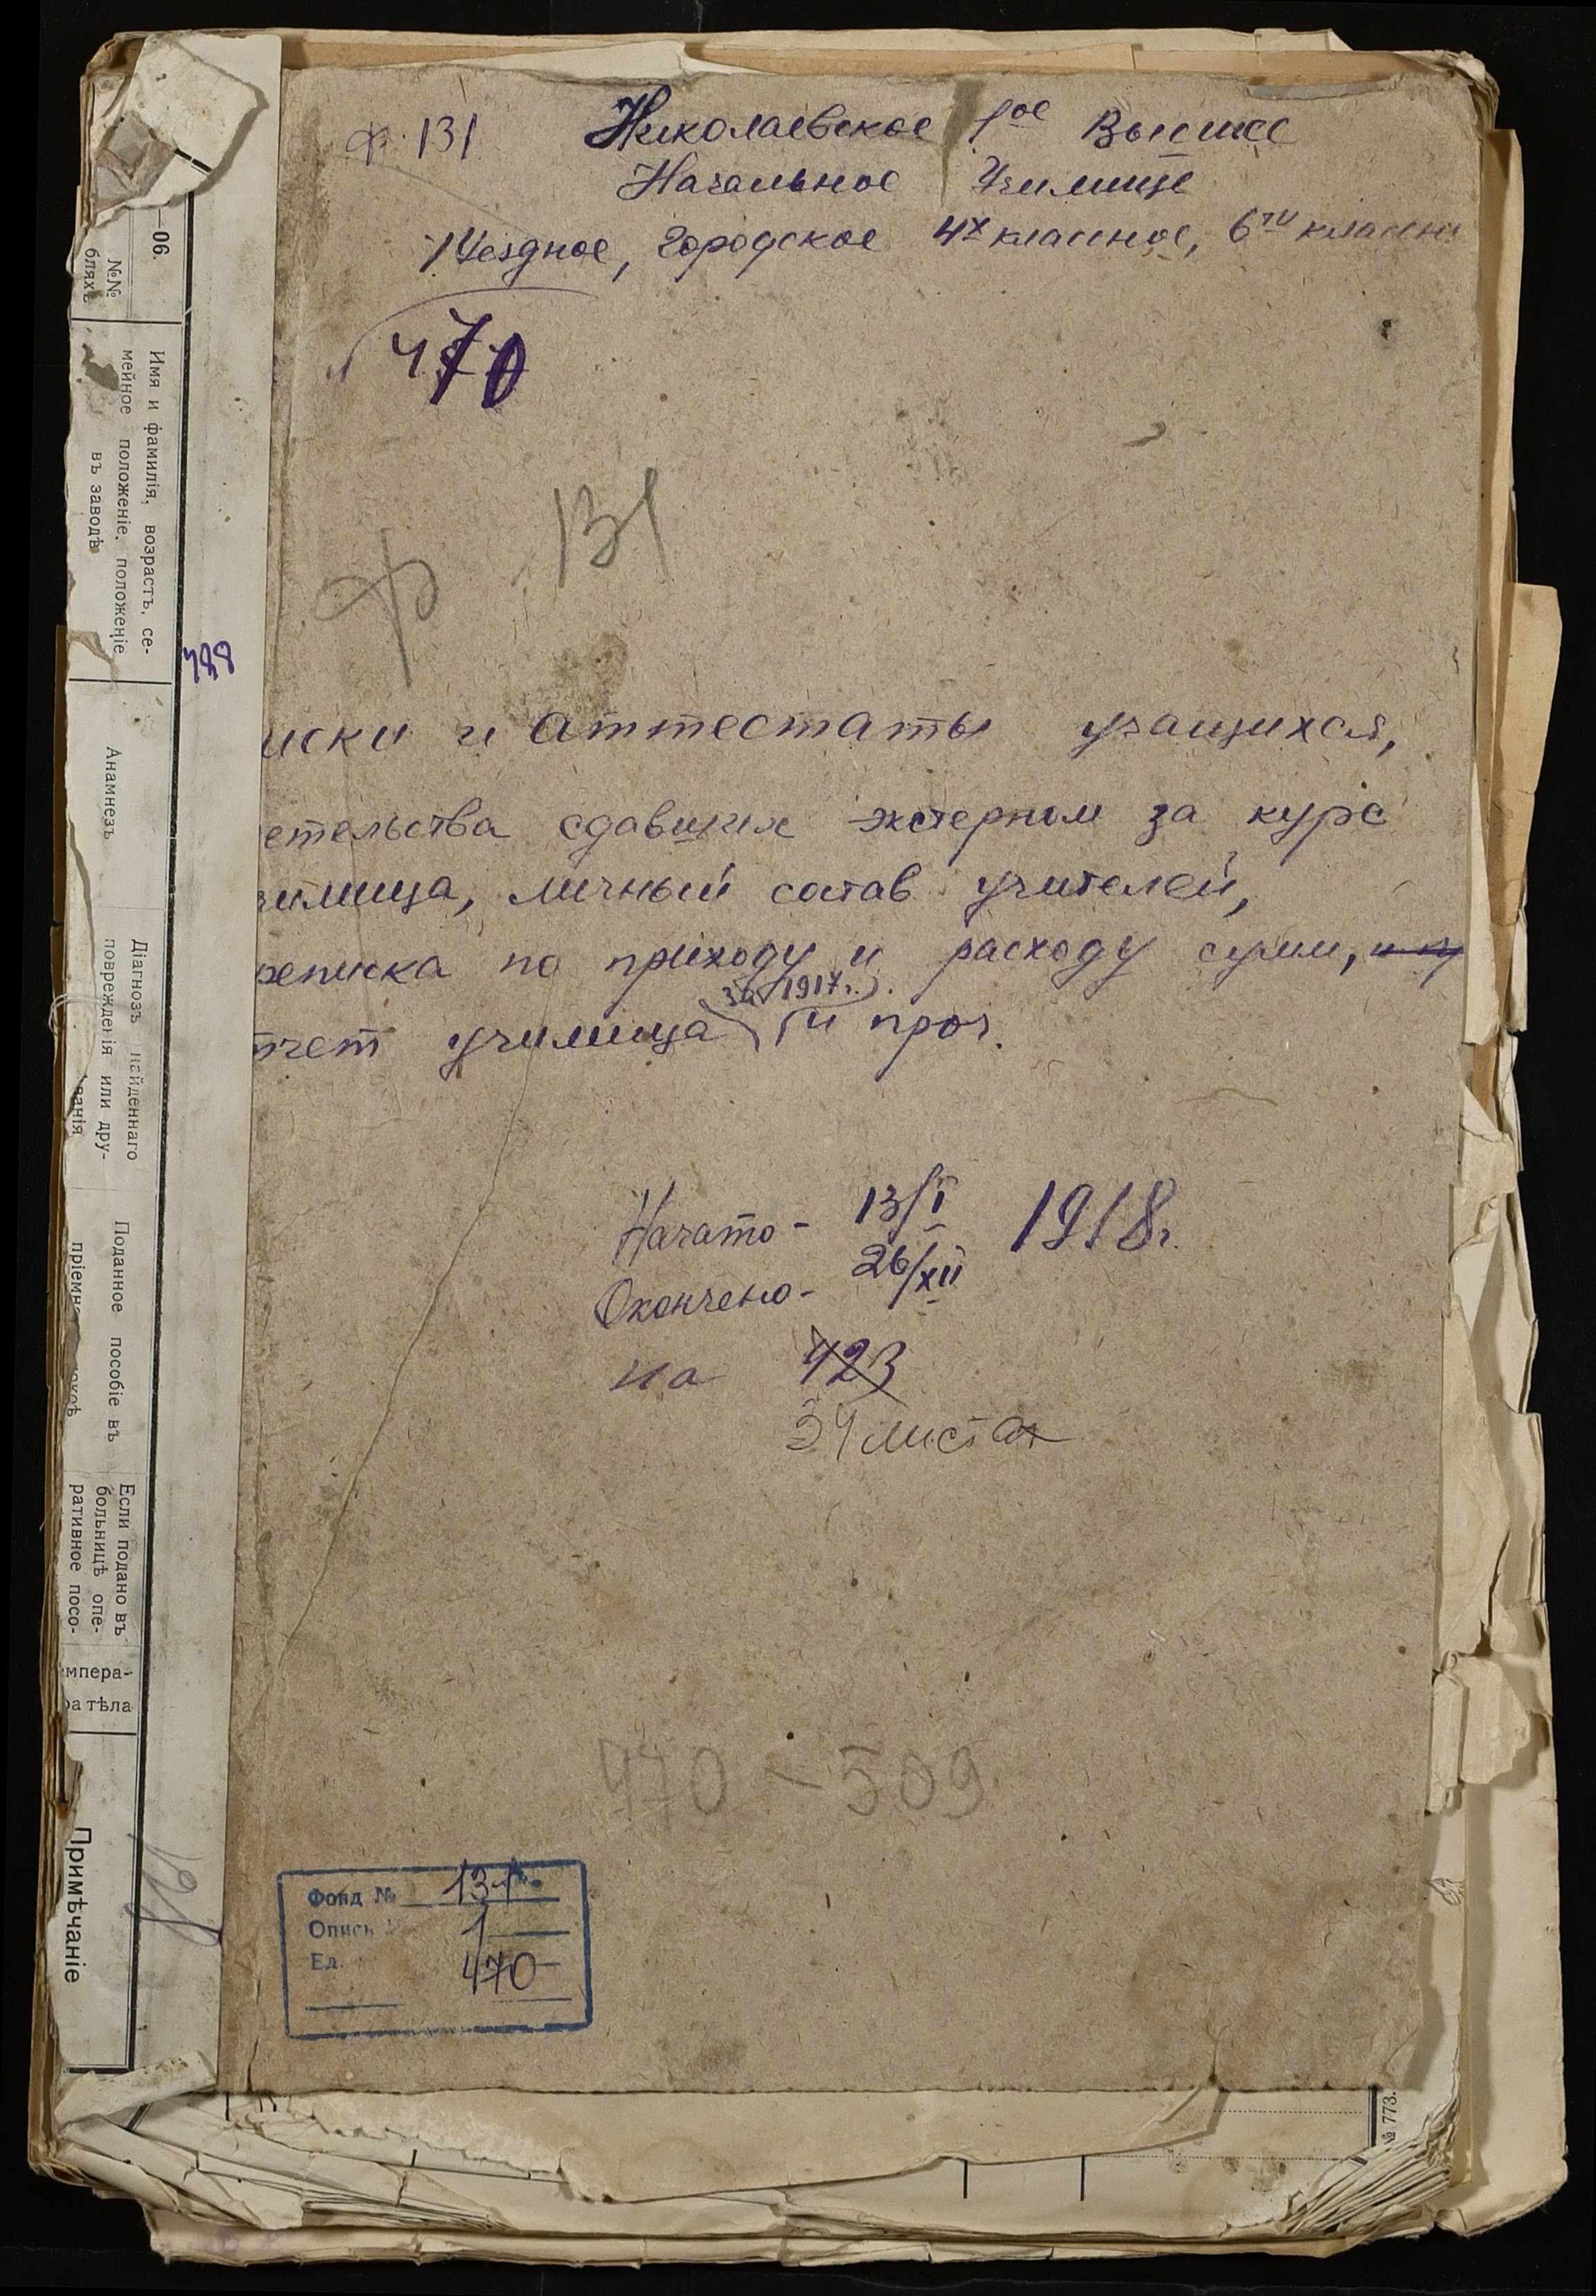 ф. 131 Николаевское 1ое Высшее
Начальное Училище
/Уездное, городское 4х классное, 6ти классн
470
ф 131
488
иски и аттестаты учащихся,
етельства сдавших экстерном за курс
чилища, личный состав учителей,
реписка по приходу и расходу сумм,
за 1917 г.
тчет училища и проч.
Начато - 13/I 1918 г.
Окончено - 26/XII
на 423
34 листах
470 - 509
Фонд № 131
Опись 1
Ед. 470
—06.
№№
бляхъ
Имя и фамилія, возрастъ, се-
мейное положеніе, положеніе
въ заводѣ
Анамнезъ
Діагнозъ найденнаго
поврежденія или дру-
ванія
Поданное пособіе въ
пріемн
Если подано въ
больницѣ опе-
ративное посо-
мпера-
ра тѣла
Примѣчаніе
№ 773.